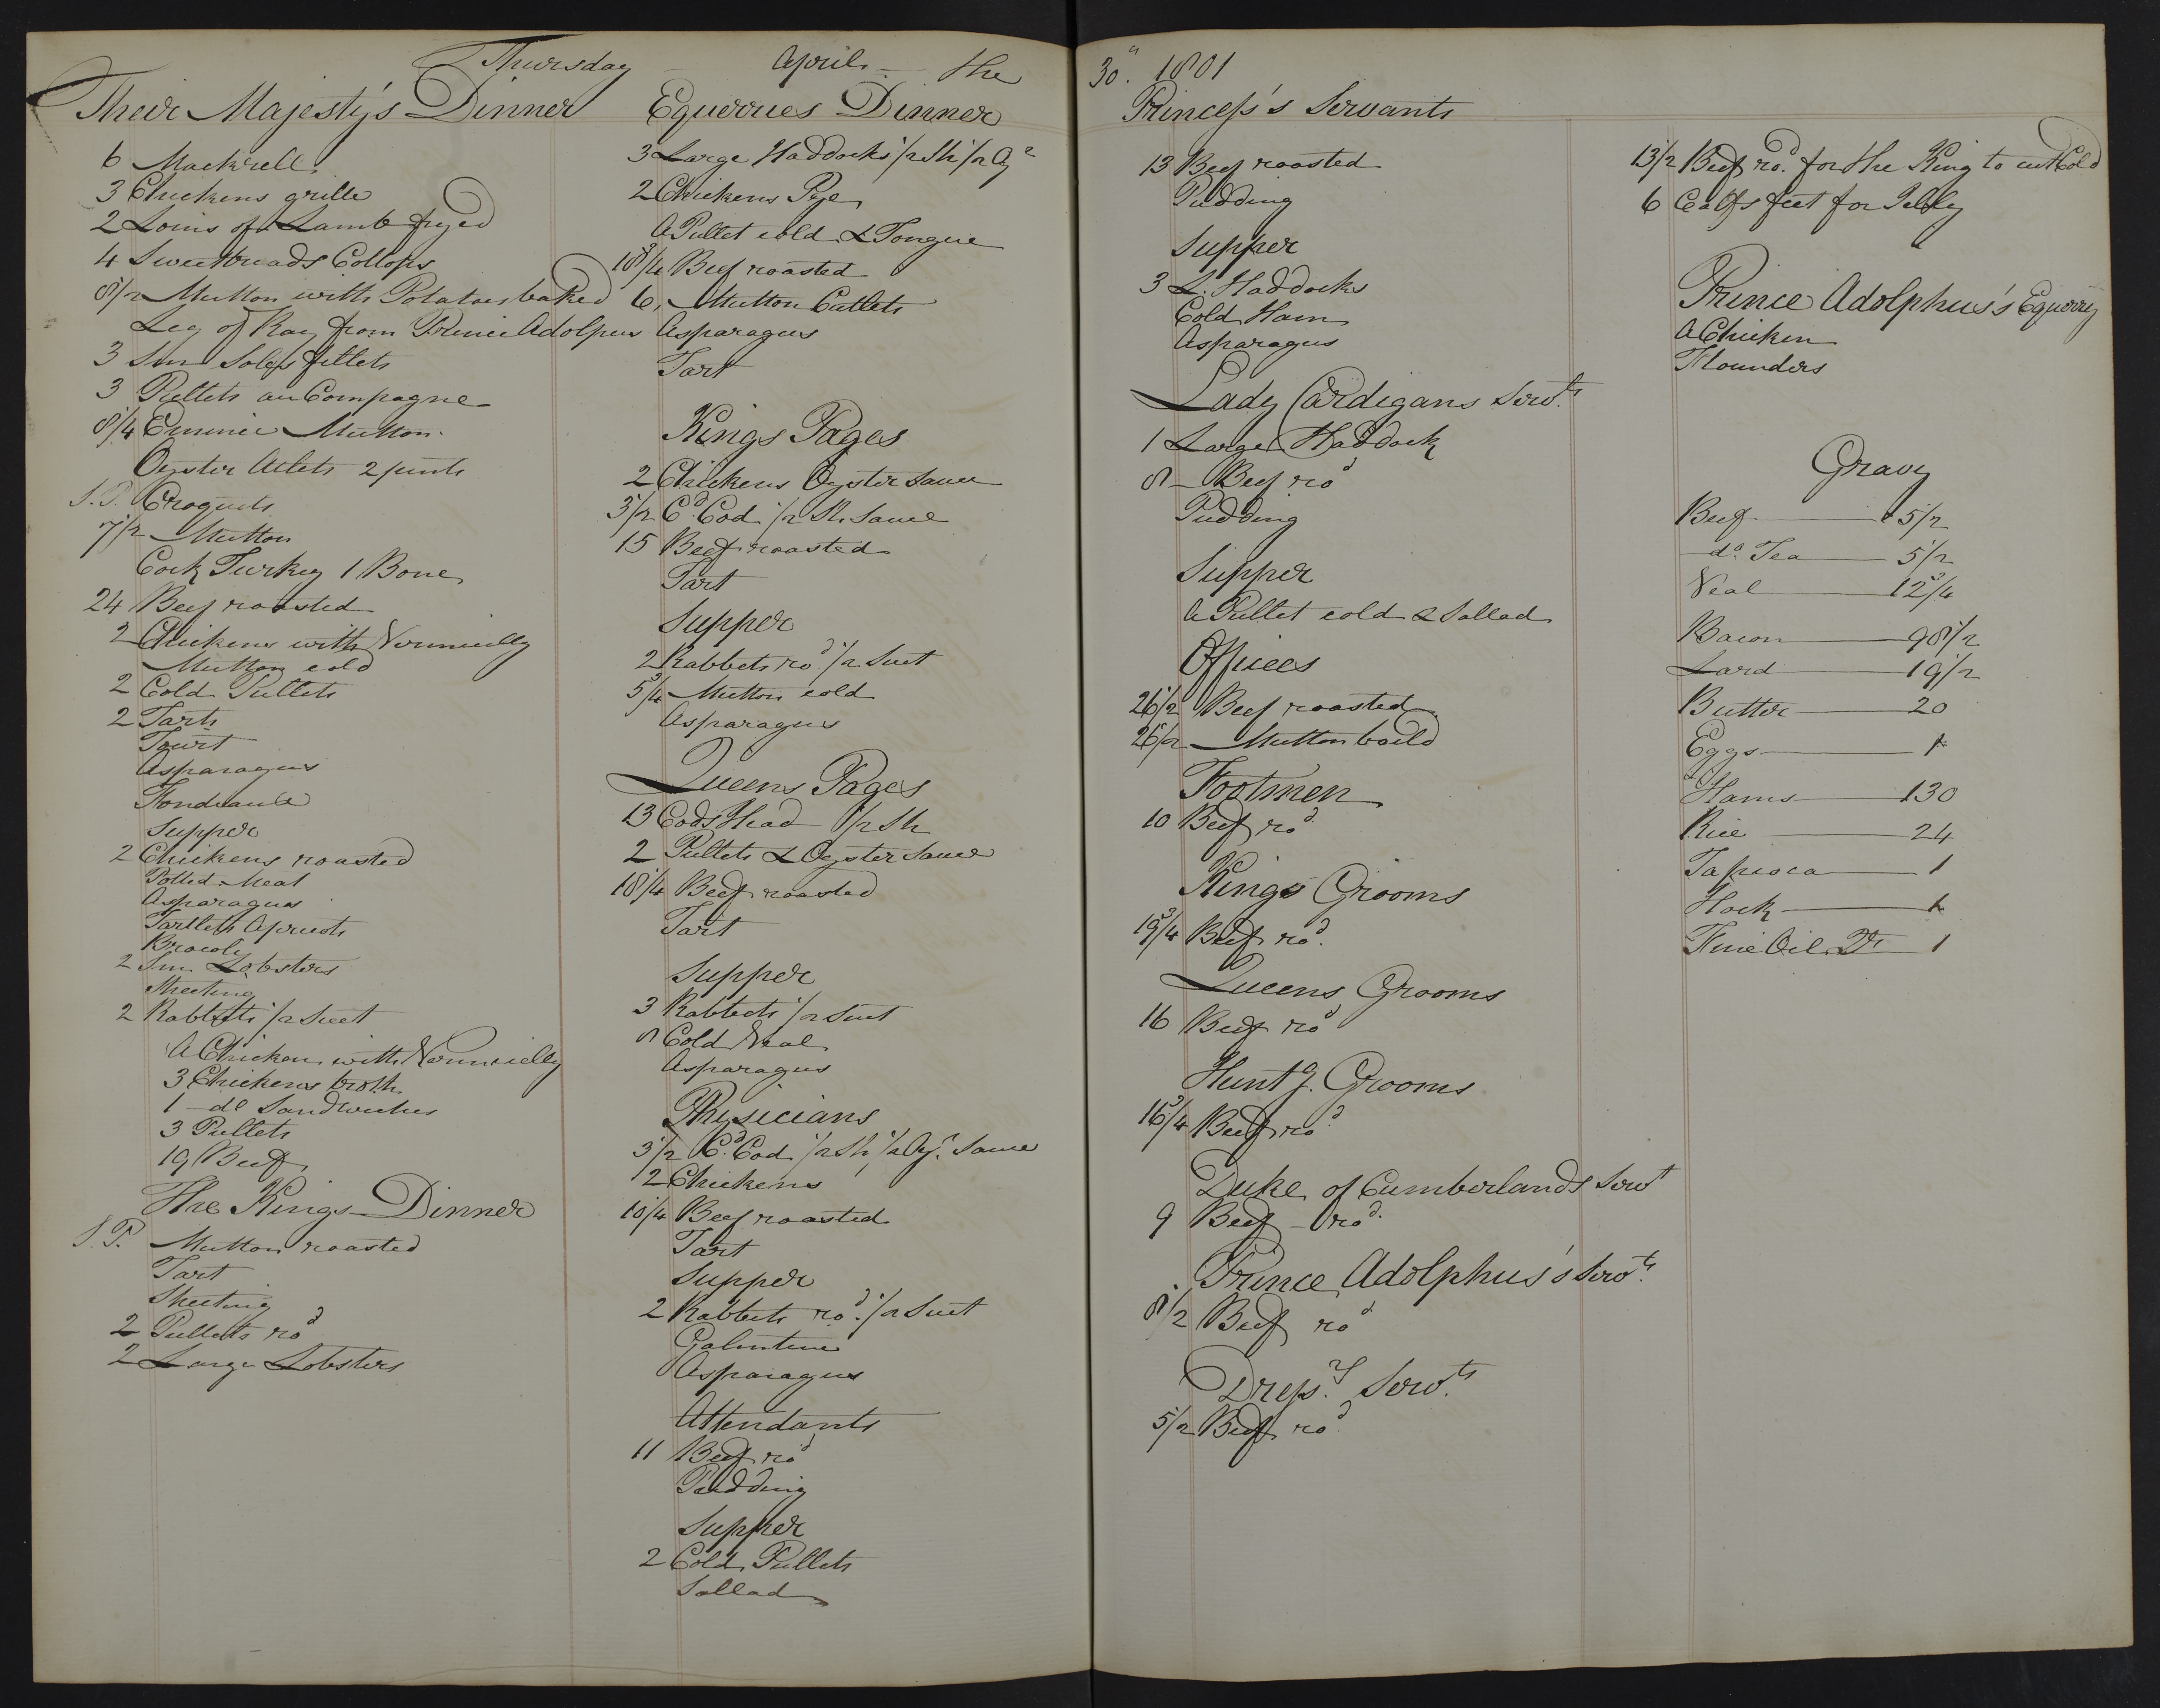 Thursday April the 30th. 1801
Their Majesty's Dinner
6 Mackrell
3 Chickens grille
2 Loins of Lamb fryed
4 Sweetbreads Collops
8 1/2 Mutton with Potatoes baked
Leg of from Prince Adolpus
3 Sm Soles fillets
3 Pullets au Compagne
8 1/4 Emince Mutton
Oyster Atlets 2 pints
S.P. Croquets
7 1/2 Mutton
Cock Turkey 1 Bone
24 Beef roasted
2 Chickens with Vermicelly
Mutton cold
2 Cold Pullets
2 Tarts
Tourt
Asparagus
Supper
2 Chickens roasted
Potted Meat
Asparagus
Tartlets Apricots
Brocoly
2 Sm. Lobsters
Meeting
2 Rabbets 1/2 Suet
A Chicken with Vermicelly
3 Chickens broth
1 do Sandwiches
3 Pullets
19 Beef
The Kings Dinner
S.P. Mutton roasted
Tart
2 Pullets rod
2 Large Lobsters
Equerries Dinner
3 Large Haddocks 1/2 Sh 1/2 Oyr
2 Chickens Pye
A Pullet cold & Tongue
18 3/4 Beef roasted
6 Mutton Cutlets
Asparagus
Tart
Kings Pages
2 Chickens Oyster Sauce
3 1/2 Cd. Cod 1/2 Sh. Sauce
15 Beef roasted
Tart
Supper
2 Rabbets rod. 1/2 Suet
5 3/4 Mutton cold
Asparagus
Queens Pages
13 Cods Head 1/2 Sh
2 Pullets & Oyster Sauce
18 1/4 Beef roasted
Tart
Supper
3 Rabbets 1/2 Suet
8 Cold Veal
Asparagus
Physicians
3 1/2 Cd. Cod 1/2 Sh, 1/2 Oyr. Sauce
2 Chickens
10 1/4 Beef roasted
Tart
Supper
2 Rabbets rod. 1/2 Suet
Galintine
Asparagus
Attendants
11 Beef rod
Pudding
Supper
2 Cold Pullets
Sallad
Princess's Servants
13 Beef roasted
Pudding
Supper
3 L. Haddocks
Cold Ham
Asparagus
Lady Cardigans Servts.
1 Large Haddock
8 Beef rod
Pudding
Supper
A Pullet cold & Sallad
Offices
26 1/2 Beef roasted
26 1/2 Mutton boild
Footmen
10 Beef rod
Kings Grooms
19 3/4 Beef rod.
Queens Grooms
16 Beef rod
Huntg. Grooms
16 3/4 Beef rod
Duke of Cumberlands Servt
9 Beef rod.
Prince Adolphus's Servts.
8 1/2 Beef rod
Dressrs. Servts.
5 1/2 Beef rod
13 1/2 Beef rod. for the King to cut Cold
6 Calfs feet for Jelly
Prince Adolphus's Equerry
A Chicken
Flounders
Gravy
Beef 5 1/2
do. Tea 5 1/2
Veal 12 3/4
Bacon 98 1/2
Lard 19 1/2
Butter 20
Eggs 1
Hams 130
Rice 24
Tapioca 1
Hock 1
Fine Oil 1